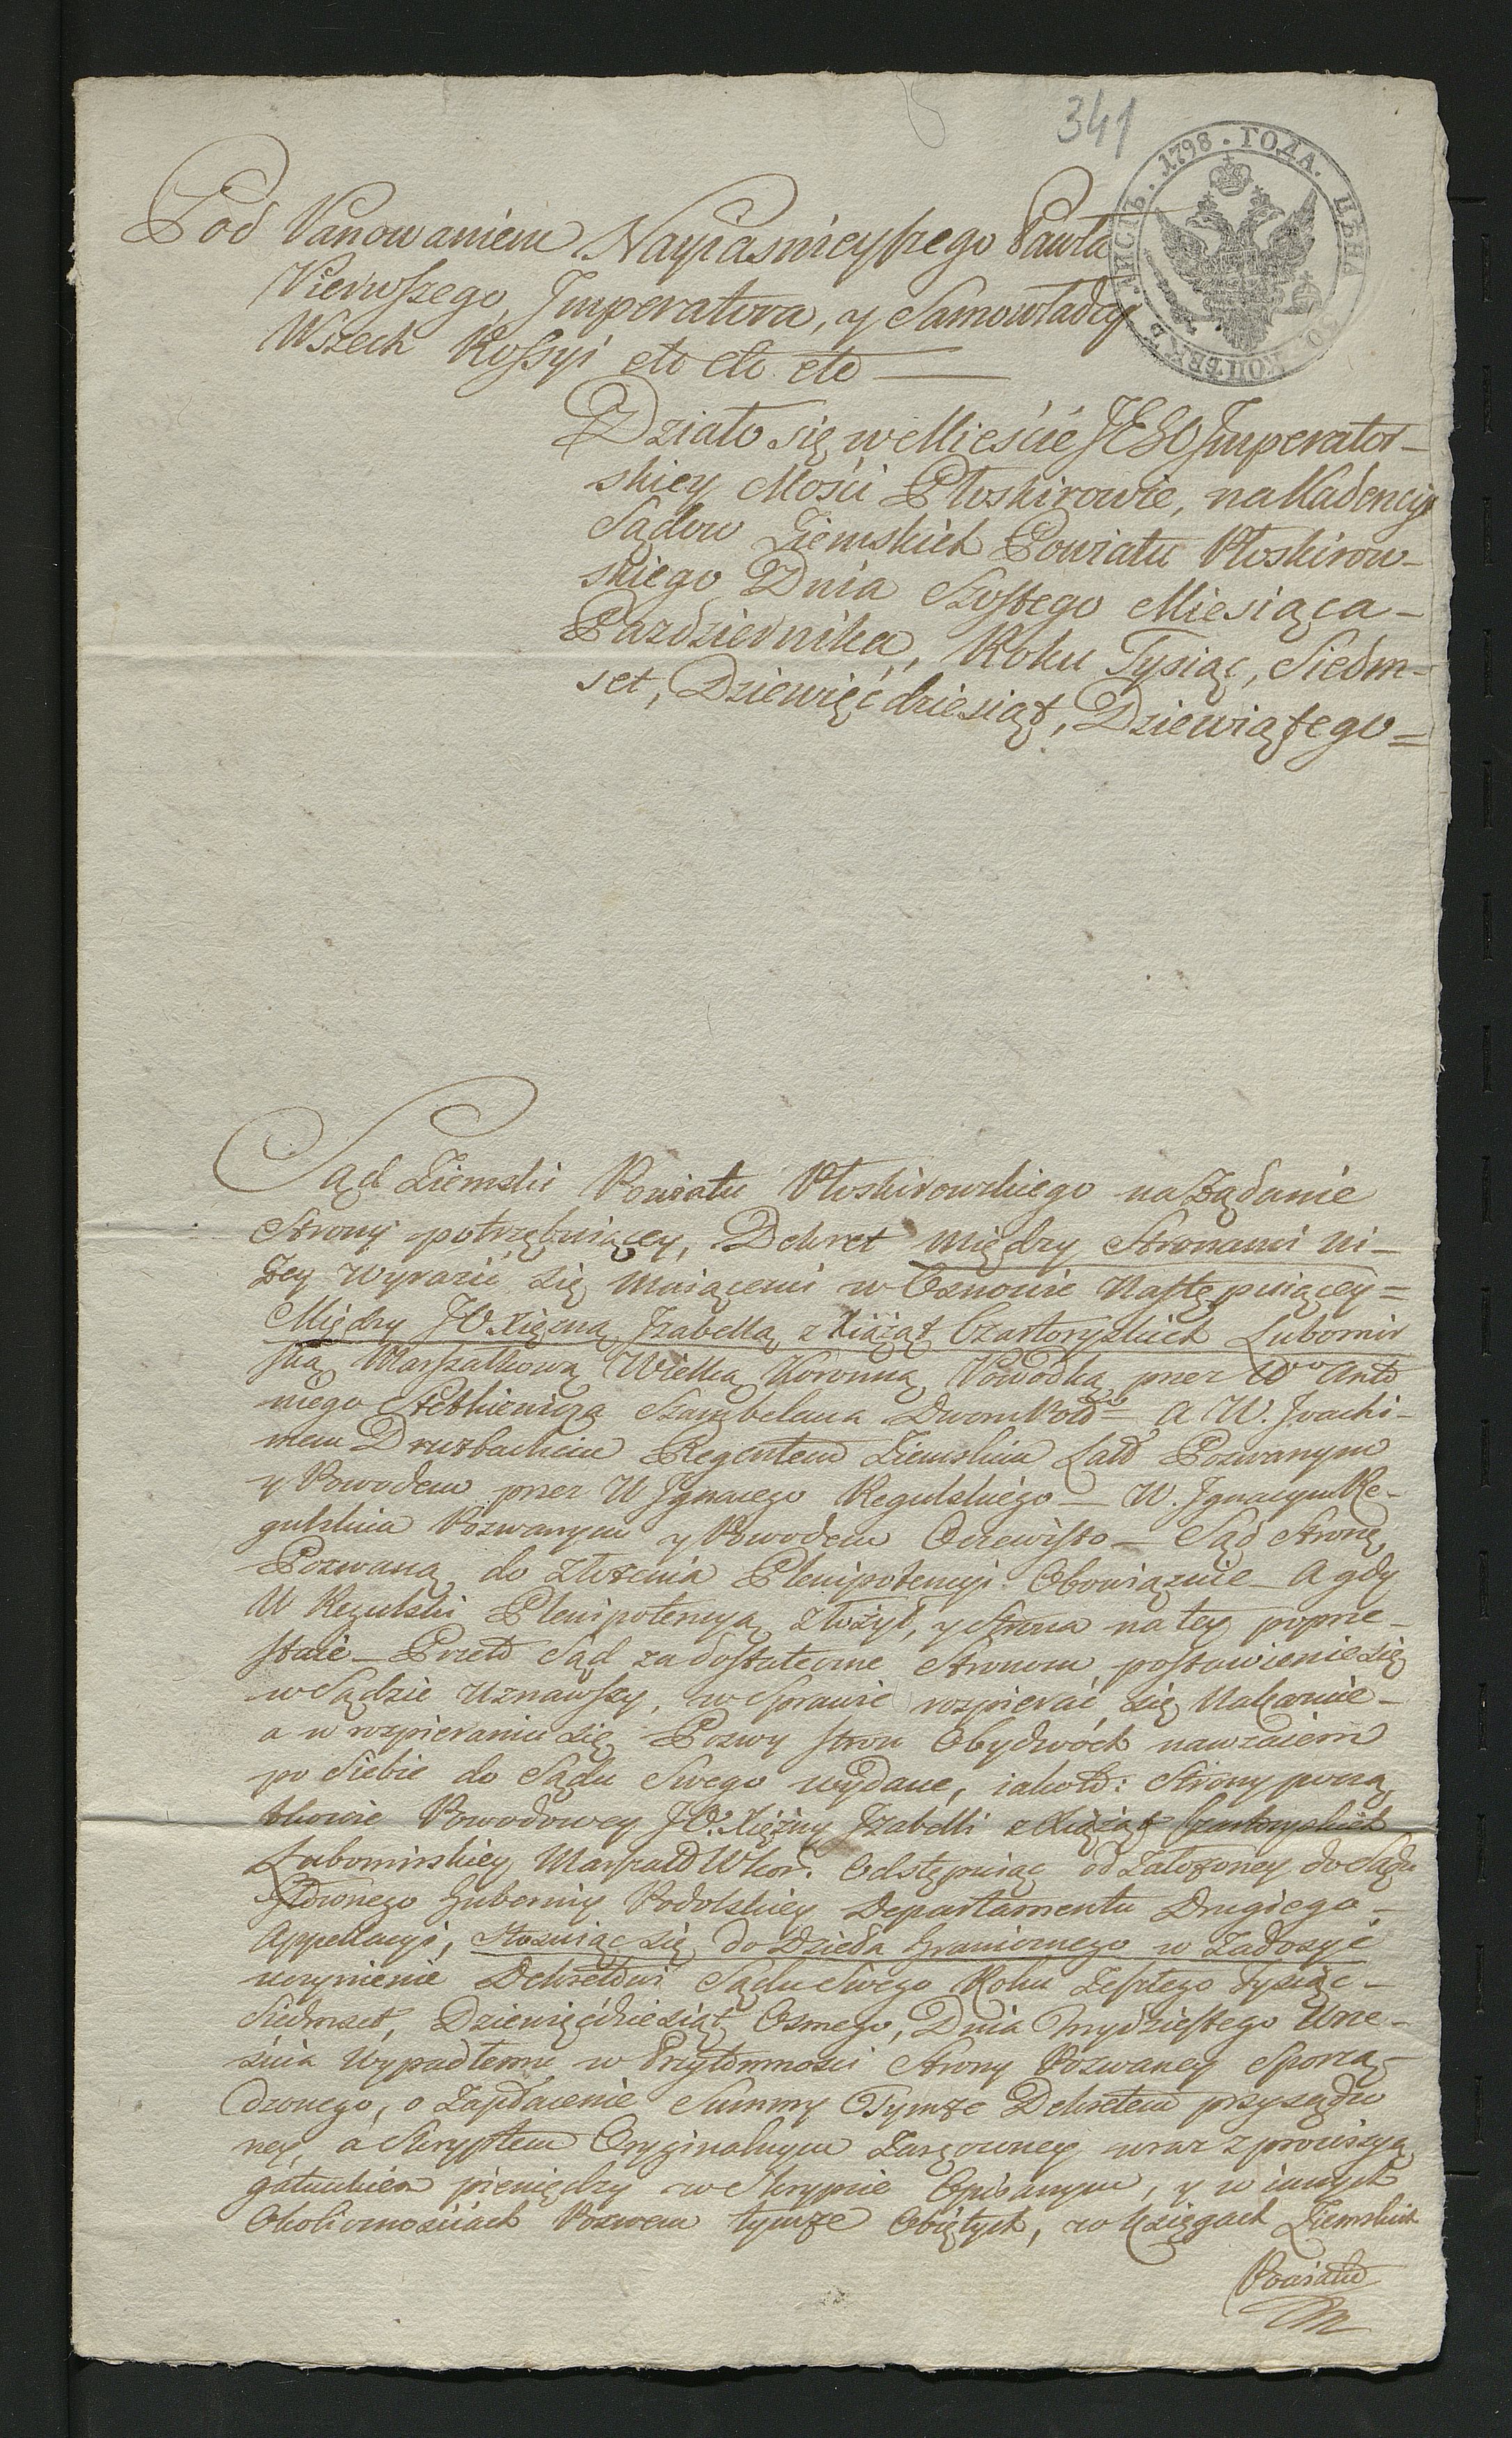 341
ЛИСТЪ. 1798. ГОДА. ЦЕНА КОПѢЕКЪ
Pod Panowaniem Nayiasnieyszego Pawła
Pierwszego Imperatora, y Samowładcy
Wszech Rossyi etc etc etc —
Działo się w Mieście JEGO Imperator-
skiey Mości Płoskirowie, na Kadencyi
Sądow Ziemskich Powiatu Płoskirow-
skiego Dnia Szostego Miesiąca -
Pazdziernika, Roku Tysiąc, Siedm-
set, Dziewięćdziesiąt, Dziewiątego =
Sąd Ziemski Powiatu Płoskirowskiego na Żądanie
Strony potrzębuiącey, Dekret między Stronami ni-
żey wyrazić się maiącemi w Osnowie Następuiącey =
Między JO. Xiężną Izabellą z Xiążąt Czartoryskich Lubomir
ską Marszałkową Wielką Koronną Powodką przez Wo Anto
niego Stetkiewicza Szambelana Dworu Pols a W. Joachi-
mem Druzbackim Regentem Ziemskim Łato Pozwanym
y Powodem przez W Ignacego Regulskiego — W. Ignacym Re-
gulskim Pozwanym y Powodem Oczewisto — Sąd Stronę
Pozwaną do złożenia Plenipotencyi Obowiąznie - a gdy
W Regulski Plenipotencyą złożył, y Strona na tey poprze-
staie - Przeto Sąd za dostateczne Stronom postawienie się
w Sądzie uznawszy, w Sprawie rozpierać się Nakaznie -
a w rozpieraniu się Pozwy stron Obydwóch nawzaiem
po Siebie do Sądu Swego wydane, iakoto: Strony począ
tkowie Powodowey JO. Xiężny Izabelli z Xiążąt Czartoryskich
Lubomirskiey Marszało W kor. Odstępuiąc od Założoney do Sądu
Głównego Gubernij Podolskiey Departamentu Drugiego -
Appellacyi, stosuiąc się do Dzieła Granicznego w Zadosyć
uczynienie Dekretowi Sądu Swego Roku Zeszłego Tysiąc -
Siedmset, Dziewięćdziesiąt Osmego, Dnia Trzydziestego Wrze-
śnia Wypadłemu w Przytomności Strony Pozwaney Sporzą-
dzonego, o Zapłacenie Summy Tymże Dekretem przysądzo
ney, a Skryptem Oryginalnym Zaręczoney wraz z prowizyą
gatunkiem pieniędzy w Skrypcie Opisanym, y w innych
Okolicznościach Pozwem tymże Obiętych, w Księgach Ziemskich
Powiatu